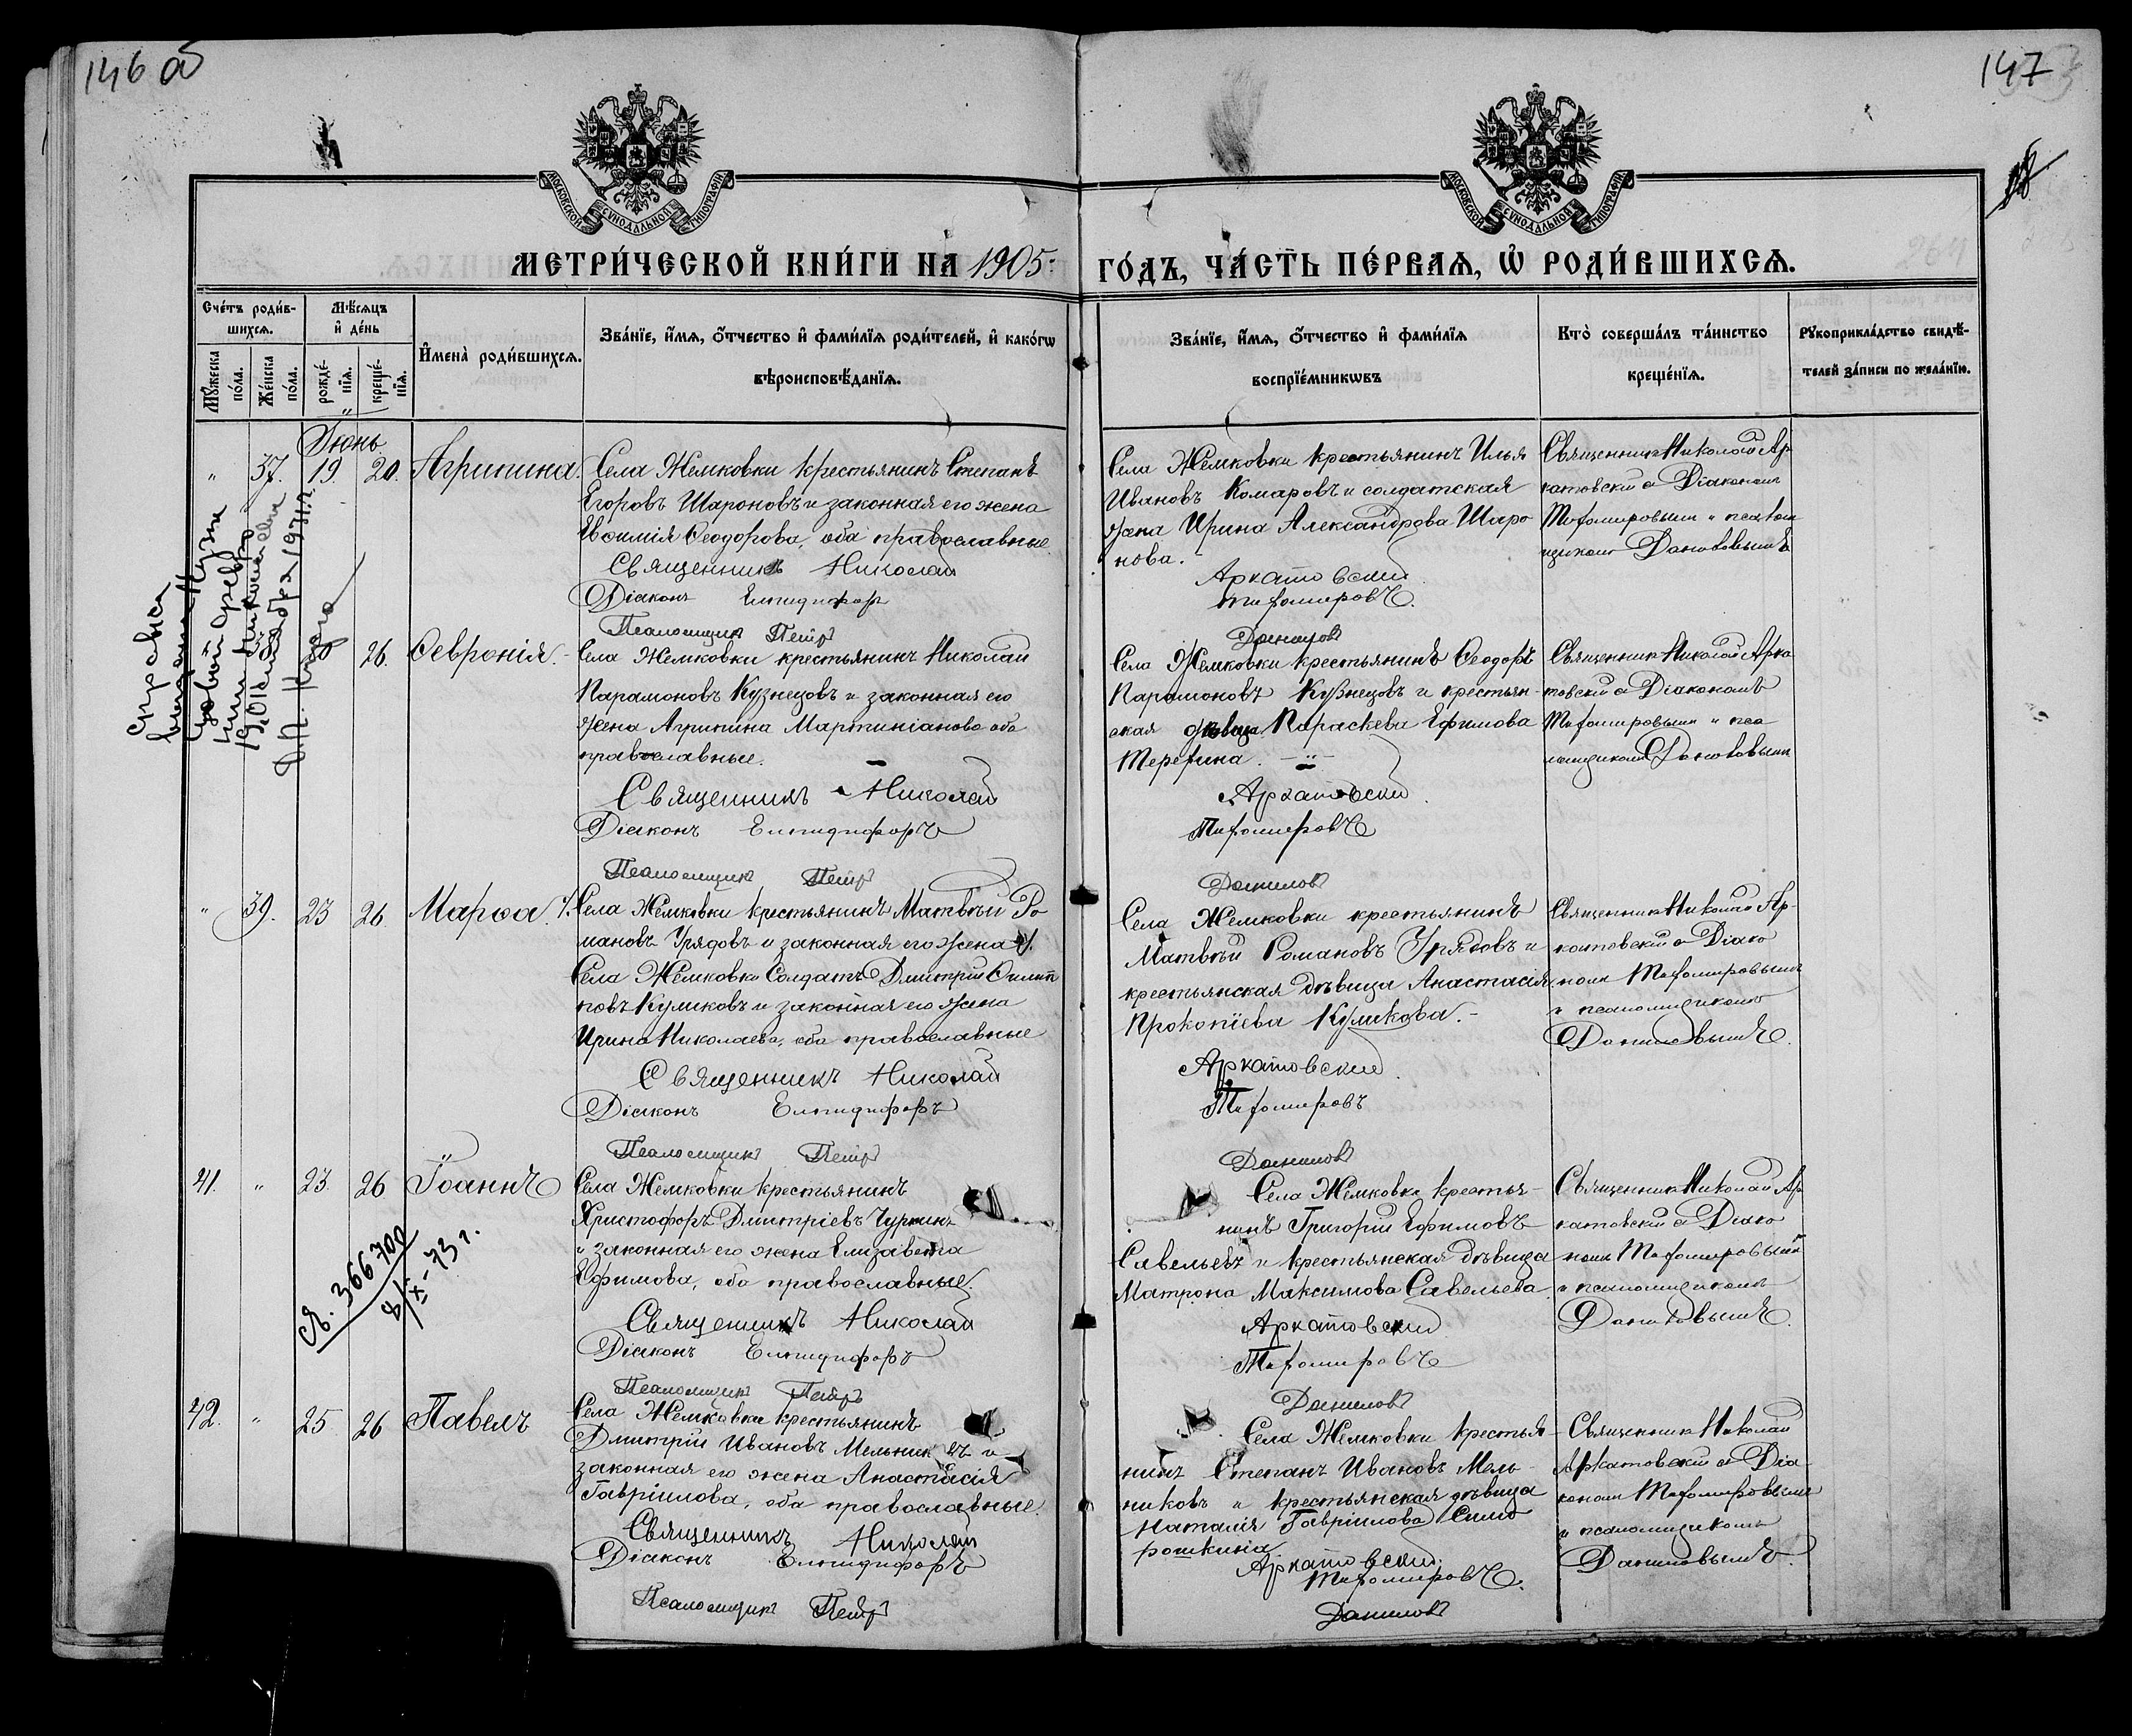 146 об
147
МОСКОВСКОЙ СѴНОДАЛЬНОЙ ТИПОГРАФІИ
МОСКОВСКОЙ СѴНОДАЛЬНОЙ ТИПОГРАФІИ
МЕТРИ́ЧЕСКОЙ КНИ́ГИ НА 1905
ГО́ДЪ, ЧА́СТЬ ПЕ́РВАѦ, Ѽ РОДИ́ВШИХСѦ.
Сче́тъ роди́в-
шихсѧ.
Мꙋ́жеска по́ла.
Же́нска по́ла.
Мѣ́сѧцъ
и҆ де́нь
рожде́-нїѧ.
креще́-нїѧ.
И҆мена̀ роди́вшихсѧ.
Зва́нїе, и҆́мѧ, ѻ҆́тчество и҆ фами́лїѧ роди́телей, и҆ како́гѡ
вѣроисповѣ́данїѧ.
Зва́нїе, и҆́мѧ, ѻ҆́тчество и҆ фами́лїѧ
воспрїе́мникѡвъ
Кто̀ соверша́лъ та́инство
креще́нїѧ.
Рꙋкоприкла́дство свидѣ́-
телей за́писи по жела́нїю.
Іюнь
" 37. 19. 20. Агрипина.
Села Жемковки крестьянинъ Степанъ
Егоровъ Шароновъ и законная его жена
Евѳимія Ѳеодорова, оба православные
Священникъ Николай
Діаконъ Елпидифоръ
Псаломщикъ Петръ
Села Жемковки крестьянинъ Илья
Ивановъ Комаровъ и солдатская
жена Ирина Александрова Шаро
нова.
Аркатовскій
Тихомировъ.
Данилов
Священникъ Николай Ар
катовскій съ Діакономъ
Тихомировымъ и псалом
щикомъ Даниловымъ
Справка
19 Октября 1931 г.
26. Ѳевронія.
Села Жемковки крестьянинъ Николай
Парамоновъ Кузнецовъ и законная его
жена Агрипина Мартиніанова оба
православные.
Священникъ Николай
Діаконъ Елпидифоръ
Псаломщикъ Петръ
Села Жемковки крестьянинъ Ѳеодоръ
Парамоновъ Кузнецовъ и крестьян-
ская дѣвица Параскева Ефимова
Терехина.
Аркатовскій
Тихомировъ
Данилов
Священникъ Николай Арка
товскій съ Діакономъ
Тихомировымъ и пса
ломщикомъ Даниловымъ
" 39. 23 26. Марѳа
Села Жемковки крестьянинъ Матвѣй Ро
мановъ Урядовъ и законная его жена
Села Жемковки Солдатъ Дмитрій Филип
повъ Куликовъ и законная его жена
Ирина Николаева, оба православные
Священникъ Николай
Діаконъ Елпидифоръ
Псаломщикъ Петръ
Села Жемковки крестьянинъ
Матвѣй Романовъ Урядовъ и
крестьянская дѣвица Анастасія
Прокопіева Куликова.
Аркатовскій
Тихомировъ
Данилов
Священникъ Николай Ар-
катовскій съ Діако
номъ Тихомировымъ
и псаломщикомъ
Даниловымъ.
41. " 23. 26 Іоаннъ
Села Жемковки крестьянинъ
Христофоръ Дмитріевъ Чуркинъ
и законная его жена Елизавета
Ефимова, оба православные.
Священникъ Николай
Діаконъ Елпидифоръ
Псаломщикъ Петръ
Села Жемковки крестья-
нинъ Григорій Ефимовъ
Савельевъ и крестьянская дѣвица
Матрона Максимова Савельева.
Аркатовскій
Тихомировъ
Данилов
Священникъ Николай Ар
катовскій съ Діако
номъ Тихомировымъ
и псаломщикомъ
Даниловымъ.
366700
8/X-73 г.
42. " 25 26 Павелъ
Села Жемковки крестьянинъ
Дмитрій Ивановъ Мельниковъ и
законная его жена Анастасія
Гавріилова, оба православные.
Священникъ Николай
Діаконъ Елпидифоръ
Псаломщикъ Петръ
Села Жемковки крестья-
нинъ Степанъ Ивановъ Мель-
никовъ и крестьянская дѣвица
Наталія Гавріилова
Аркатовскій
Тихомировъ.
Данилов
Священникъ Николай
Аркатовскій съ Діа
кономъ Тихомировымъ
и псаломщикомъ
Даниловымъ.